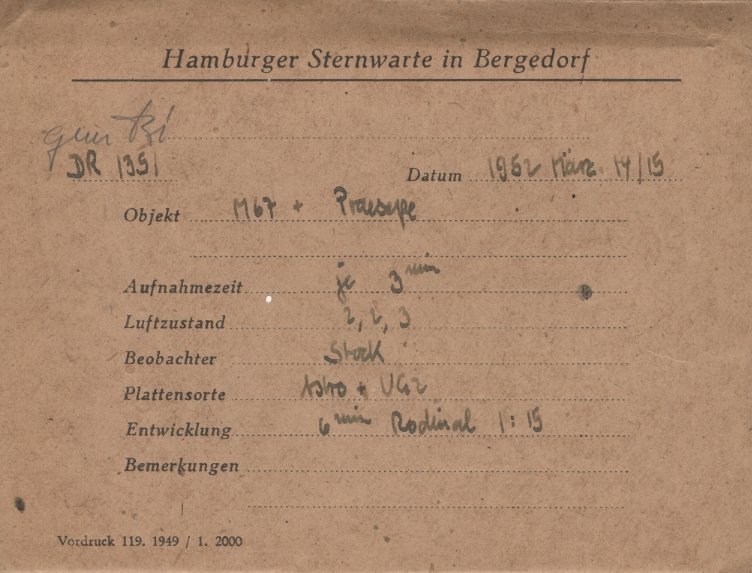 Hamburger Sternwarte in Bergedorf
DR 1351
Datum 1952 März 14/15
Objekt M67 + Praesepe
Aufnahmezeit je 3 min
Luftzustand 2, 2, 3
Beobachter Stock
Plattensorte Astro + UG2
Entwicklung 6 min Rodinal 1:15
Bemerkungen
Vordruck 119. 1949 / 1. 2000